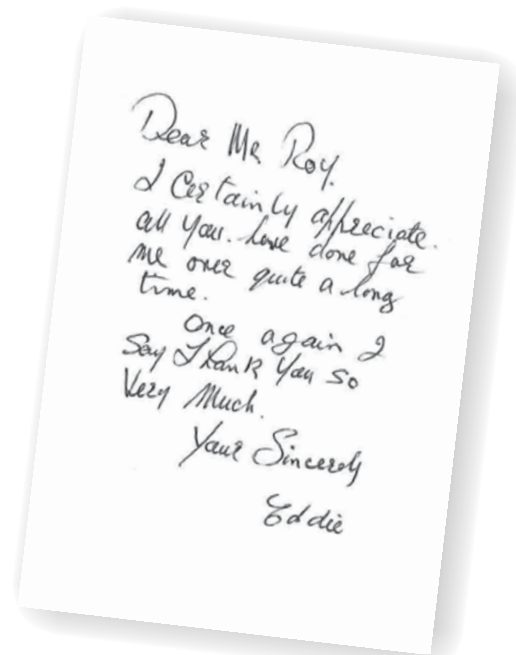 Dear Mr Roy.
I Certainly appreciate.
all You. have done for
me over quite a long
time.
Once again I
Say Thank You so
Very Much.
Your Sincerely
Eddie